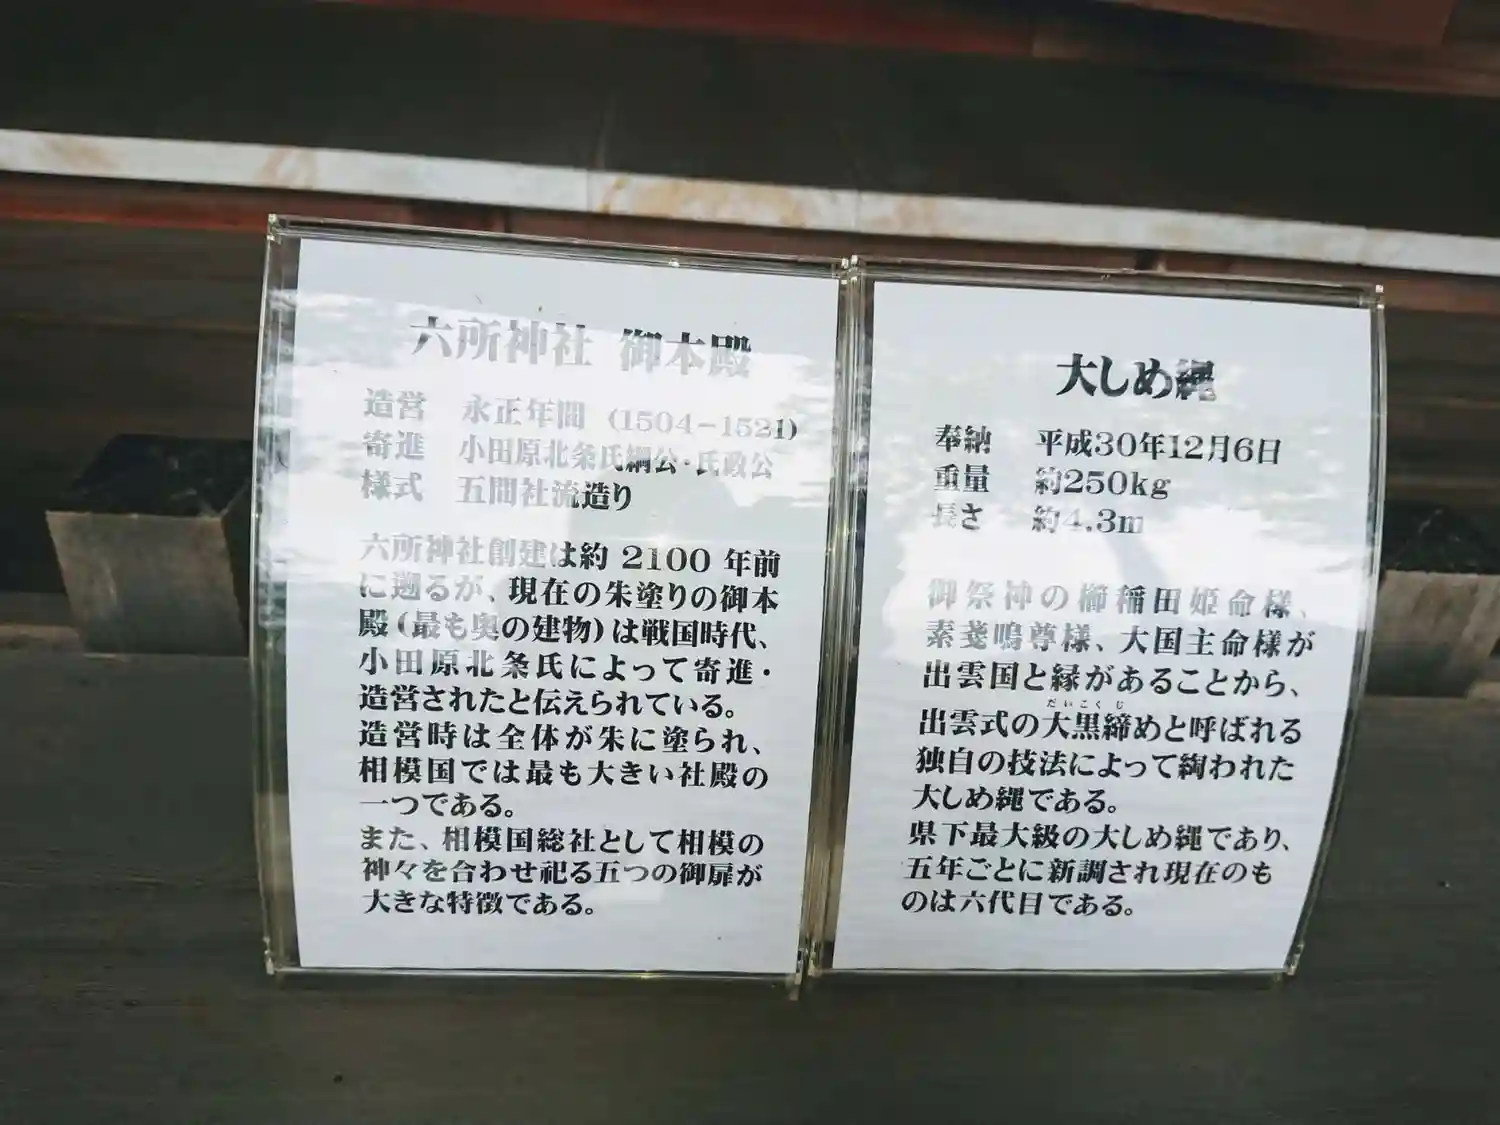 六所神社 御本殿
造営 永正年間 (1504-1521)
寄進 小田原北条氏綱公・氏政公
様式 五間社流造り
六所神社創建は約 2100 年前
に遡るが、現在の朱塗りの御本
殿(最も奥の建物)は戦国時代、
小田原北条氏によって寄進・
造営されたと伝えられている。
造営時は全体が朱に塗られ、
相模国では最も大きい社殿の
一つである。
また、相模国総社として相模の
神々を合わせ祀る五つの御扉が
大きな特徴である。
大しめ縄
奉納 平成30年12月6日
重量 約250kg
長さ 約4.3m
御祭神の櫛稲田姫命様、
素戔嗚尊様、大国主命様が
出雲国と縁があることから、
だいこくじ
出雲式の大黒締めと呼ばれる
独自の技法によって綯われた
大しめ縄である。
県下最大級の大しめ縄であり、
五年ごとに新調され現在のも
のは六代目である。